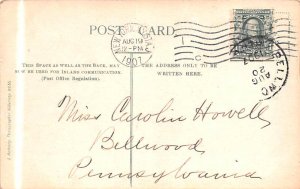 POST CARD
THIS SPACE AS WELL AS THE BACK, MAY
NOW BE USED FOR INLAND COMMUNICATION.
(Post Office Regulation).
THE ADDRESS ONLY TO BE
WRITTEN HERE.
AUG 19
-PM
1907
AUG
20
Miss Carolin Howell
Bellwood
Pennsylvania